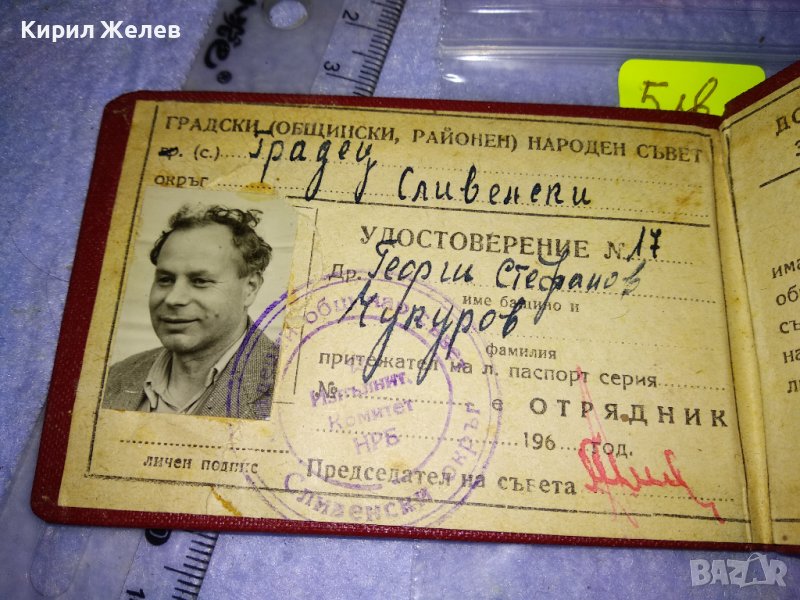 Кирил Желев
5лв
ГРАДСКИ (ОБЩИНСКИ, РАЙОНЕН) НАРОДЕН СЪВЕТ
гр. (с.) Градец
окръг Сливенски
УДОСТОВЕРЕНИЕ № 17
Др. Георги Стефанов
име бащино и
Кукуров
фамилия
притежател на л. паспорт серия
№ е ОТРЯДНИК
196 год.
личен подпис
Председател на съвета
Изпълнит.
Комитет
НРБ
Сливенски окръг
ДО
З
има
об
съ
на
ли
BAZAR